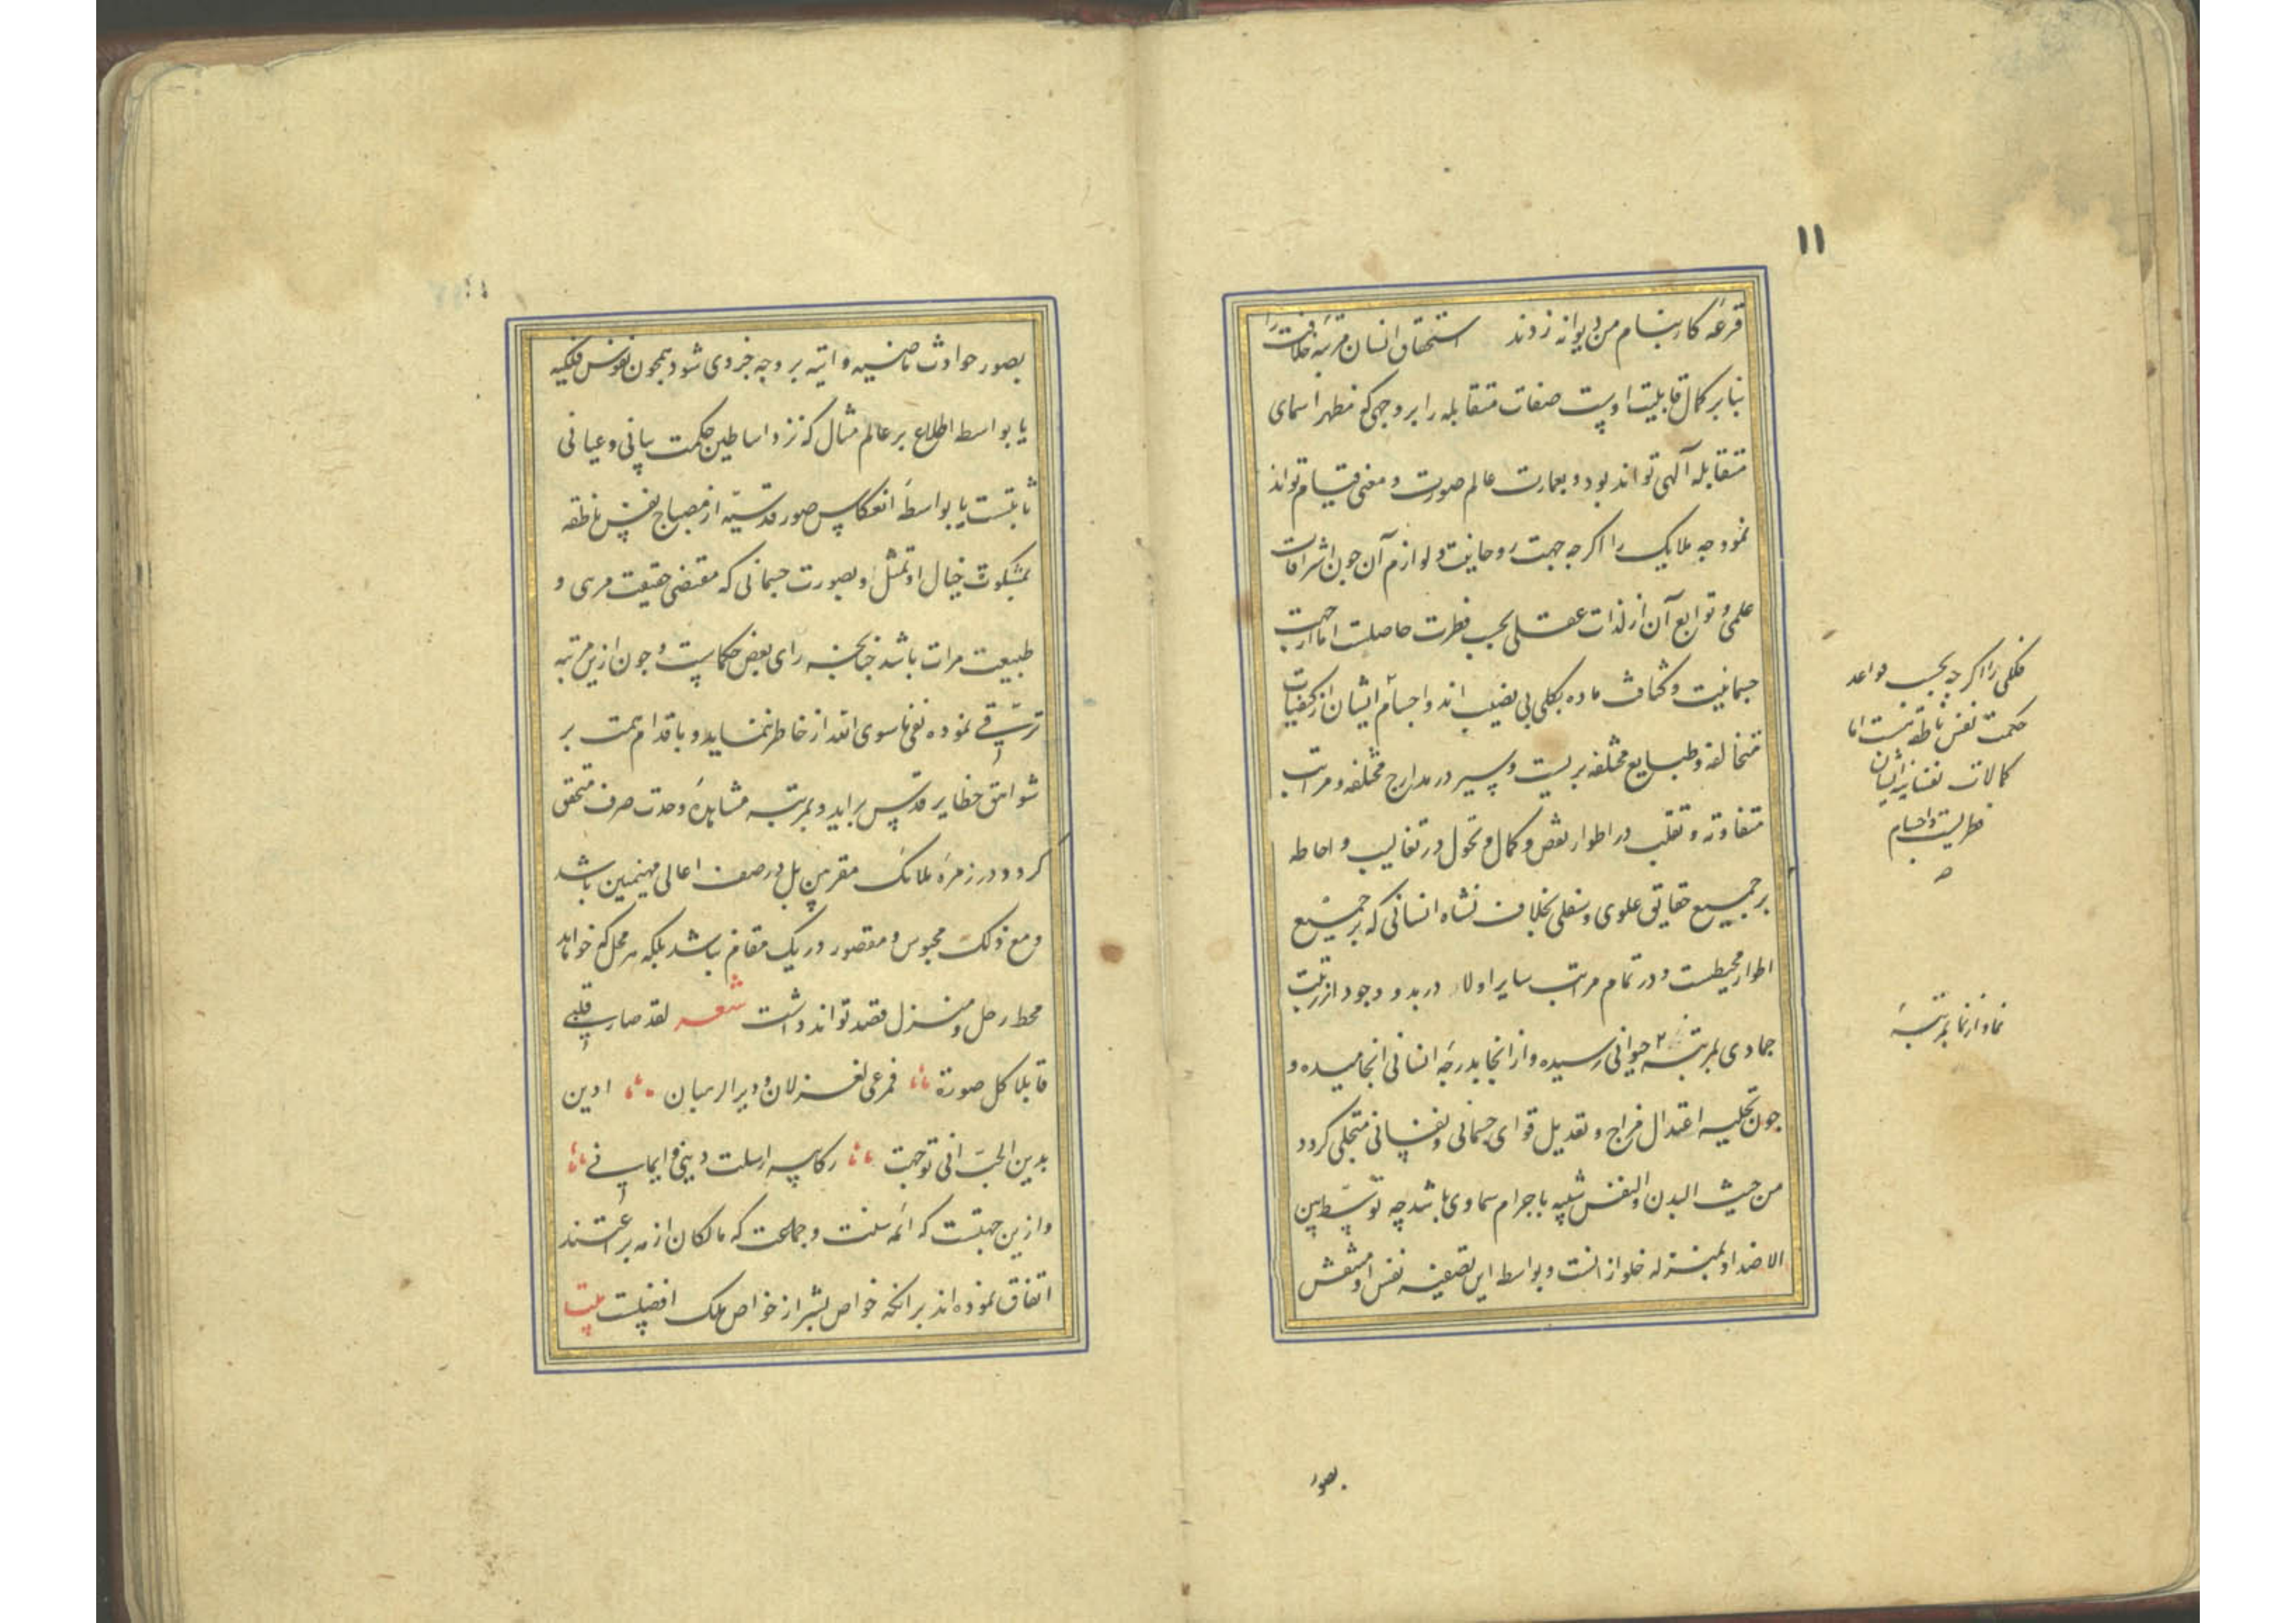 ۱۱
قرعه کار بنام من دیوانه زدند استحقاق انسان مرتبه خلافت را
بنابر کمال قابلیت اوست صفات متقابله را بر وجهی که مظهر اسمای
متقابله آلهی تواند بود و بعمارت عالم صورت و معنی قیام تواند
نمود چه ملایک را اکرچه جهت روحانیت و لوازم آن چون اشراقات
علمی و توابع آن از لذات عقلی بحسب فطرت حاصلست اما از جهت
جسمانیت و کثافت ماده بکلی بی نصیب اند و اجسام ایشان از کیفیات
متخالفه و طبایع مختلفه بریست و سیر در مدارج مختلفه و مراتب
متفاوته و تقلب در اطوار نقص و کمال و تحول در تغالیب و احاطه
بر جمیع حقایق علوی و سفلی بخلاف نشاه انسانی که بر جمیع
اطوار محیطست و در تمام مراتب سایر اولا در بدو وجود از رتبت
جمادی بمرتبه حیوانی رسیده و از آنجا بدرجه انسانی انجامیده و
چون تحلیه اعتدال مزاج و تعدیل قوای جسمانی و نفسانی متجلی کردد
من حیث البدن و النفس شبیه باجرام سماوی باشد چه توسط بین
الاضداد بمنزله خلو از انست و بواسطه این تصفیه نفس او منتقش
فلکی را اکرچه بحسب قواعد
حکمت نفس ناطقه هست اما
کمالات نفسانیه ایشان
فطریست و اجسام
نما و از نما بمرتبه
بصور
بصور حوادث ماضیه و اتیه بر وجه جزوی شود همچون نفوس فلکیه
یا بواسطه اطلاع بر عالم مثال که نزد اساطین حکمت بیانی و عیانی
ثابتست یا بواسطه انعکاس صور قدسیه از مصباح نفس ناطقه
بمشکوت خیال او تمثل او بصورت جسمانی که مقتضی حقیقت مری و
طبیعت مرات باشد چنانچه رای بعض حکماست و چون ازین مرتبه
ترقی نموده نفی ماسوی الله از خاطر نماید و باقدام همت بر
شواهق حظایر قدس براید و بمرتبه مشاهده وحدت صرف متحقق
کردد و در زمره ملائک مقربین بل در صف اعالی مهیمین باشد
و مع ذلک محبوس و مقصور در یک مقام نباشد بلکه هر محل که خواهد
محط رحل و منزل قصد تواند داشت شعر لقد صار قلبی
قابلا کل صورة فمرعی لغزلان و دیر الرهبان ادین
بدین الحب انی توجهت رکائبه ارسلت دینی و ایمانی
و ازین جهتست که ائمه سنت و جماعت که مالکان ازمه برعتند
اتفاق نموده اند بر انکه خواص بشر از خواص ملک افضلست بیت